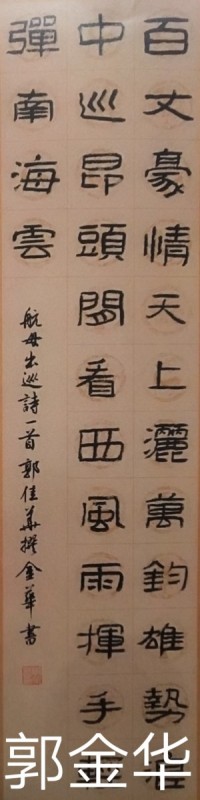 百丈豪情天上灑萬鈞雄勢
中巡昂頭閒看西風雨揮手
彈南海雲
航母出巡詩一首郭佳華撰金華書
郭金华